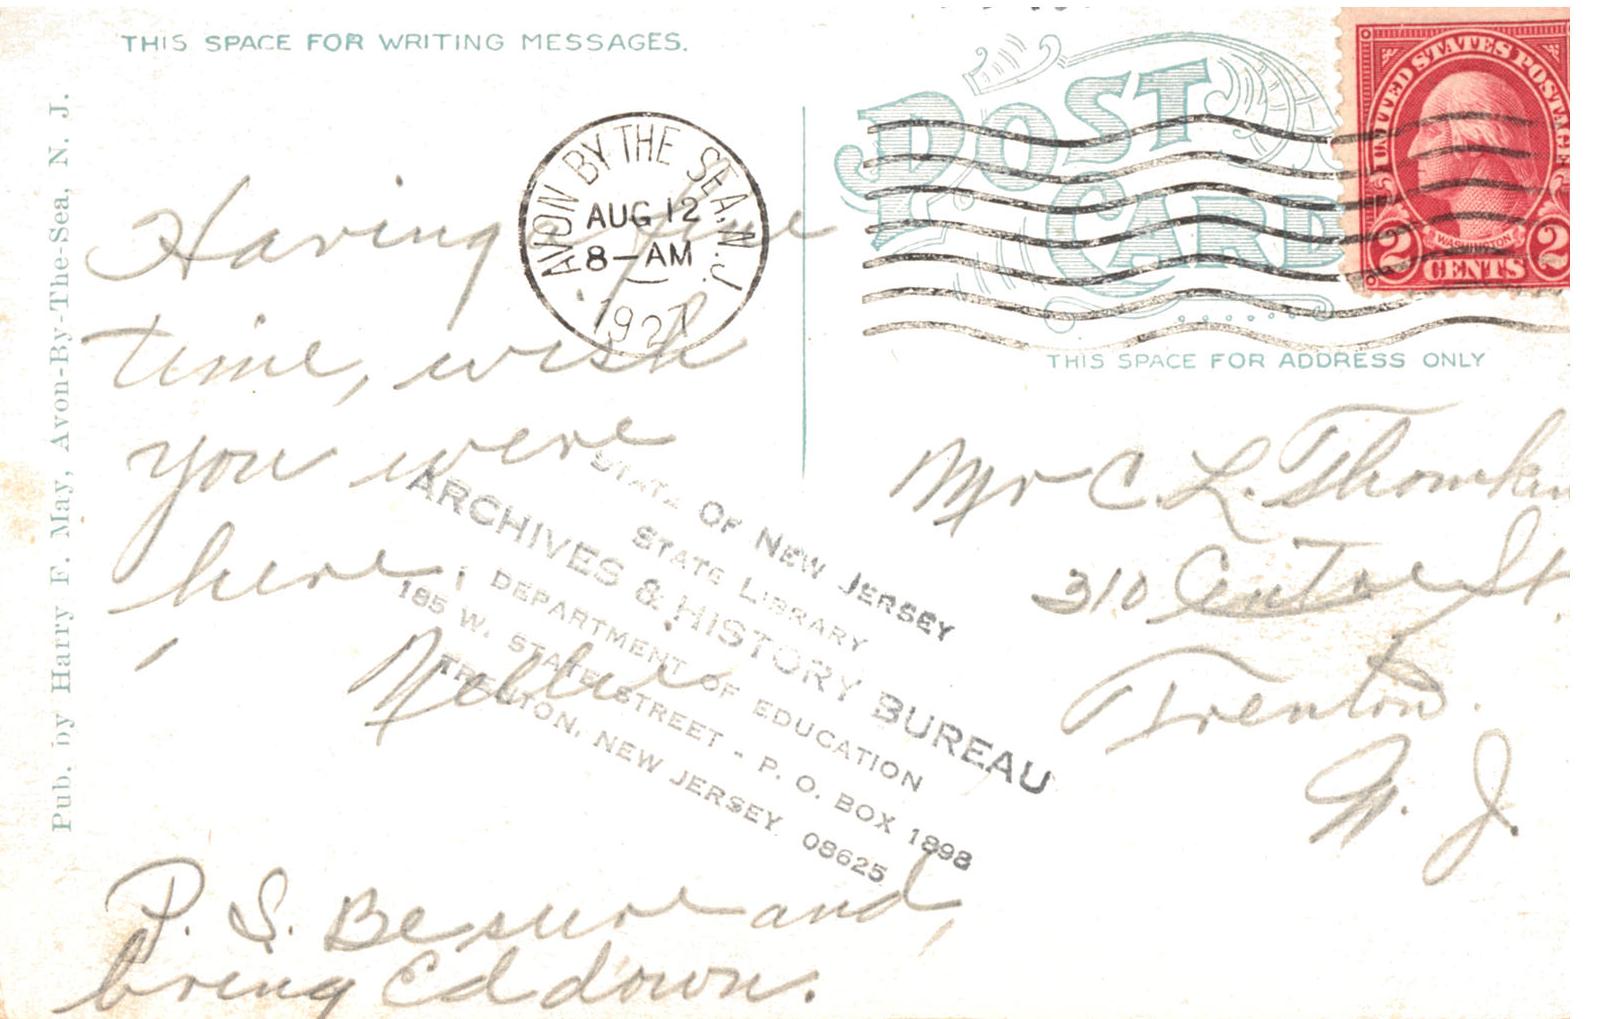 THIS SPACE FOR WRITING MESSAGES.
Pub. by Harry F. May, Avon-By-The-Sea, N. J.
Having fine
time, wish
you were
here,
Nellie
P. S. Be sure and,
bring Ed down.
AVON BY THE SEA. N.J.
AUG 12
8-AM
1927
POST
CARD
UNITED STATES POSTAGE
WASHINGTON
2 CENTS 2
THIS SPACE FOR ADDRESS ONLY
Mr C. L. Thomkin
310 Centre St.
Trenton.
N. J.
STATE OF NEW JERSEY
STATE LIBRARY
ARCHIVES & HISTORY BUREAU
DEPARTMENT OF EDUCATION
185 W. STATE STREET - P. O. BOX 1898
TRENTON, NEW JERSEY 08625